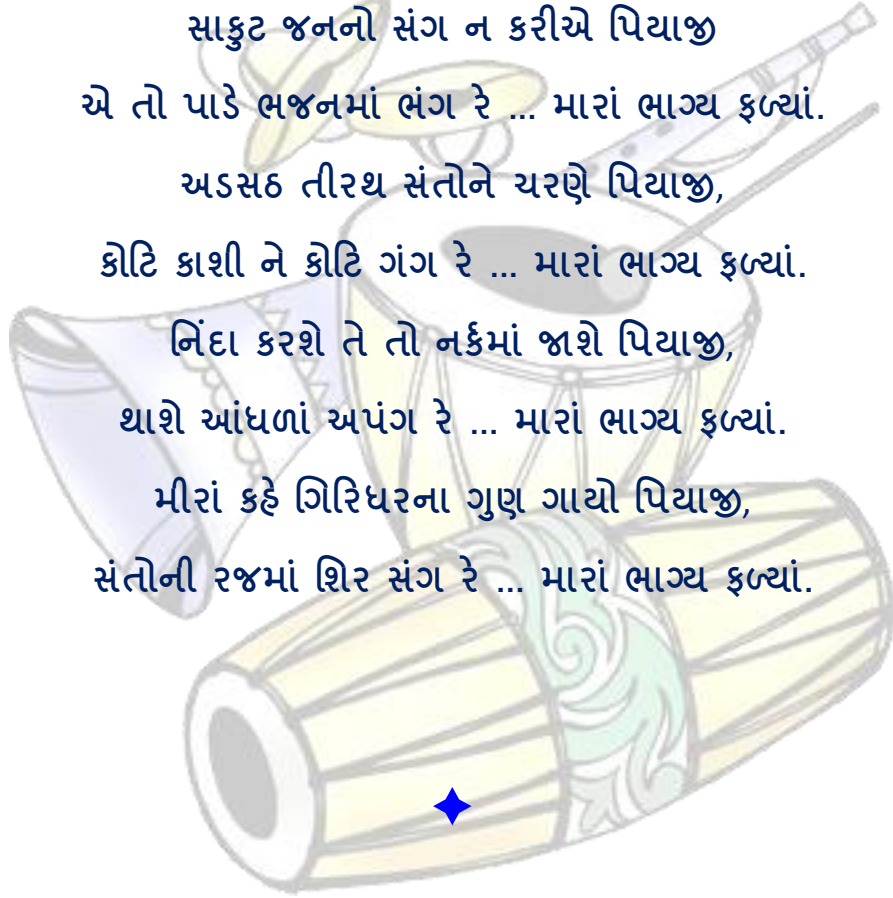 સાકુટ જનનો સંગ ન કરીએ પિયાજી
એ તો પાડે ભજનમાં ભંગ રે ... મારાં ભાગ્ય ફળ્યાં.
અડસઠ તીરથ સંતોને ચરણે પિયાજી,
કોટિ કાશી ને કોટિ ગંગ રે ... મારાં ભાગ્ય ફળ્યાં.
નિંદા કરશે તે તો નર્કમાં જાશે પિયાજી,
થાશે આંધળાં અપંગ રે ... મારાં ભાગ્ય ફળ્યાં.
મીરાં કહે ગિરિધરના ગુણ ગાયો પિયાજી,
સંતોની રજમાં શિર સંગ રે ... મારાં ભાગ્ય ફળ્યાં.